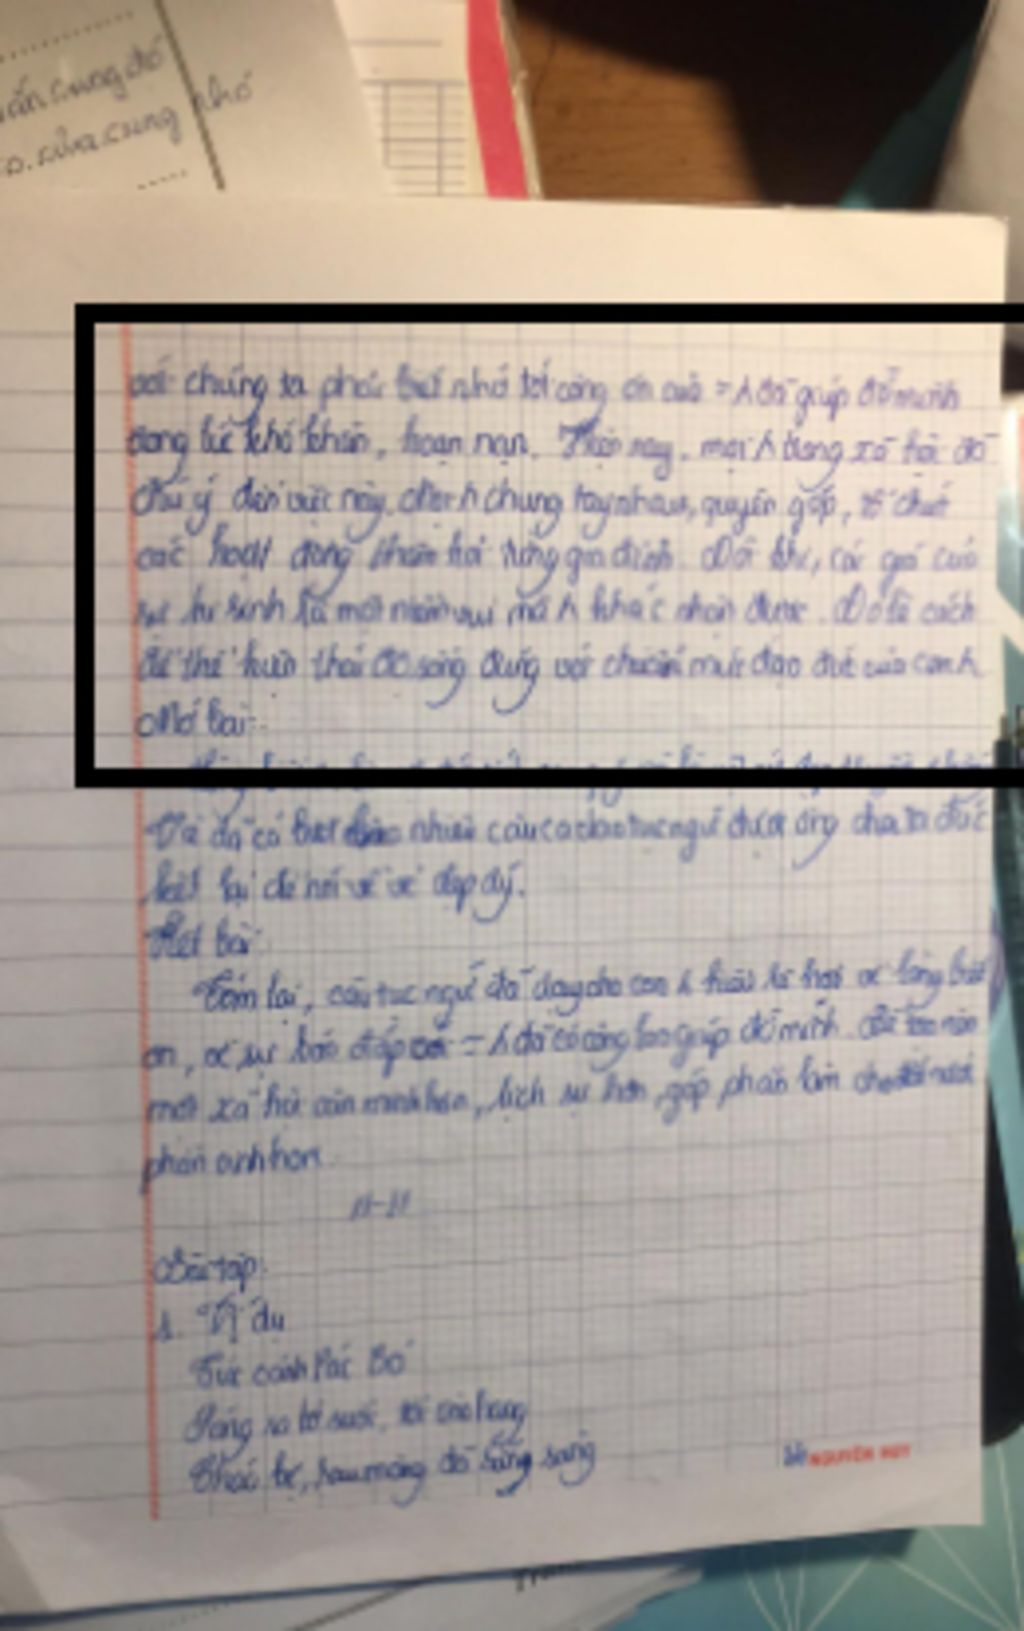 ấn cung đó
nhó
sửa cung
với chúng ta phải biết nhớ tới công ơn của = λ đã giúp đỡ mình
trong lúc khó khăn, hoạn nạn. Hiện nay, mọi λ trong xã hội đã
chú ý đến việc này, chung tay nhau, quyên góp, tổ chức
các hoạt động thăm hỏi từng gia đình. Đôi khi, cái giá của
sự hi sinh là một niềm vui mà λ khác nhận được. Đó là cách
để thể hiện thái độ sống đúng với chuẩn mực đạo đức của con λ
Mở bài:
Và đã có biết bao nhiêu câu ca dao tục ngữ được ông cha ta đúc
kết lại để nói về vẻ đẹp ấy.
Kết bài:
Tóm lại, câu tục ngữ đã dạy cho con λ hiểu rõ hơn về lòng biết
ơn, về sự báo đáp với = λ đã có công lao giúp đỡ mình. Để tạo nên
một xã hội văn minh hơn, lịch sự hơn, góp phần làm cho đất nước
phồn vinh hơn.
Bài tập:
1. Ví dụ
Tức cảnh Pác Bó
Sáng ra bờ suối, tối vào hang
Cháo bẹ, rau măng đã sẵn sàng
NGUYÊN HUY